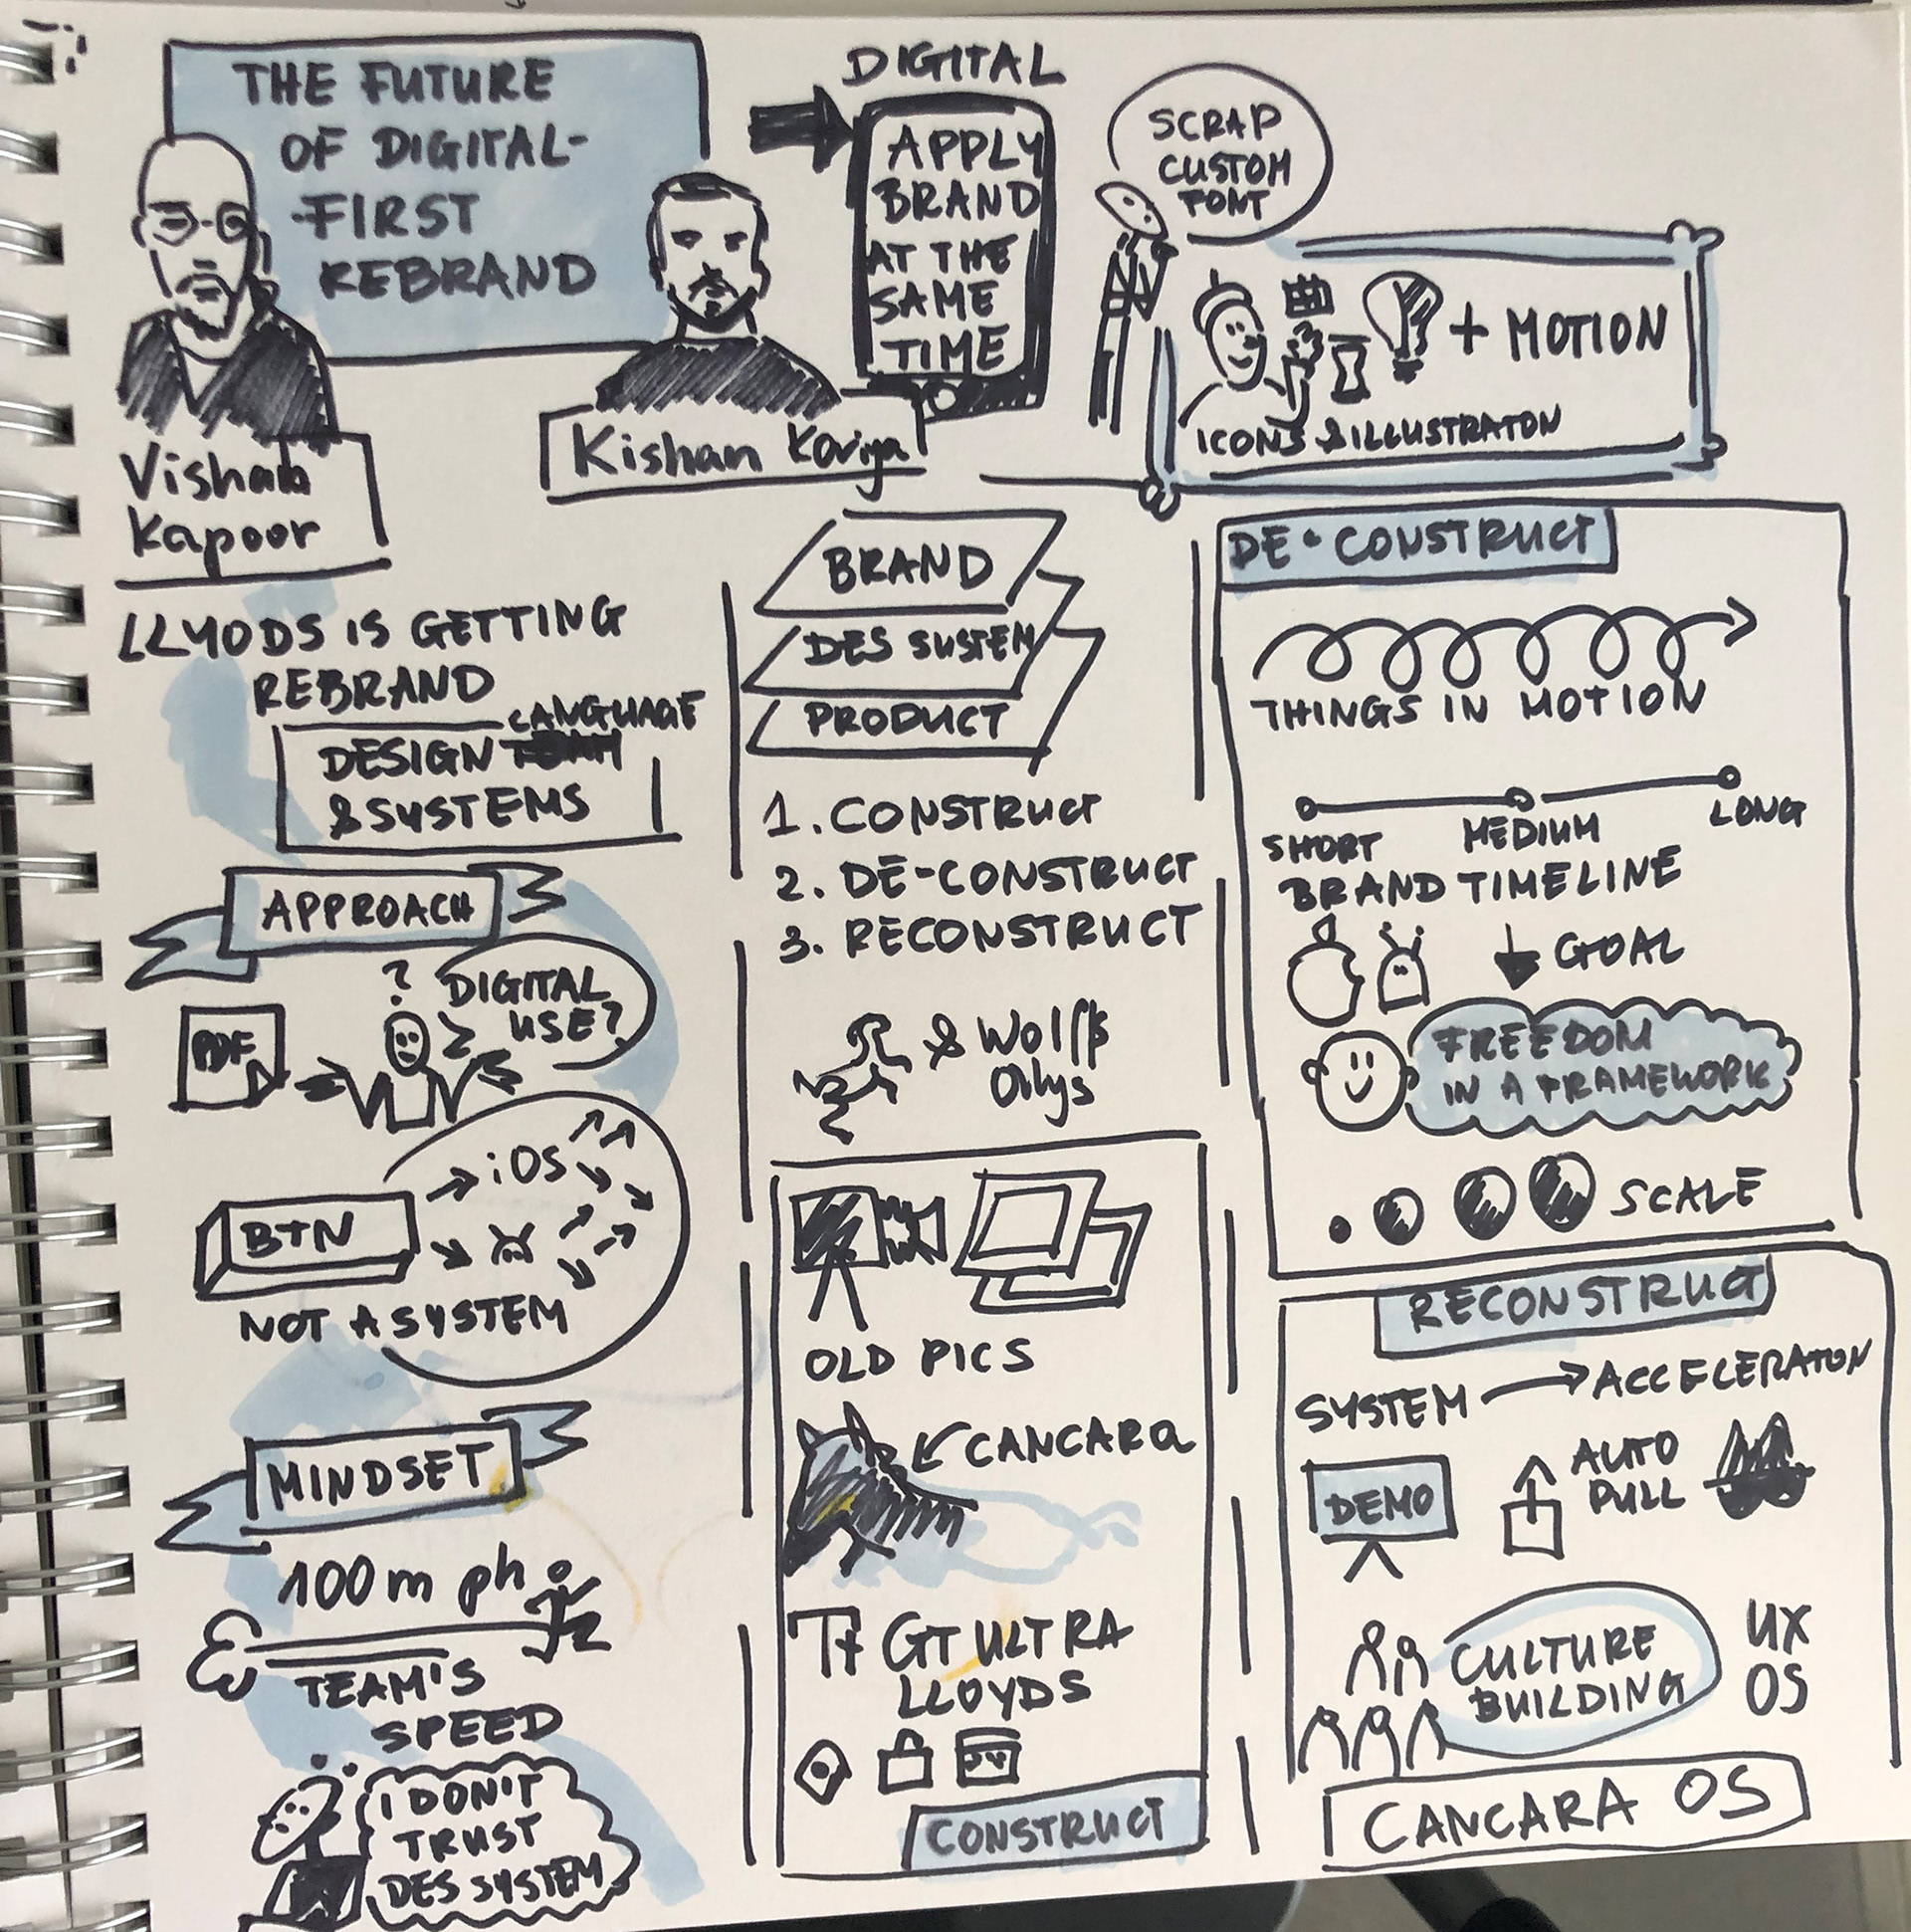 THE FUTURE
OF DIGITAL-
-FIRST
REBRAND
Vishal
Kapoor
Kishan Kariya
DIGITAL
APPLY
BRAND
AT THE
SAME
TIME
SCRAP
CUSTOM
FONT
+ MOTION
ICONS & ILLUSTRATON
LLYODS IS GETTING
REBRAND
LANGUAGE
DESIGN
& SYSTEMS
APPROACH
PDF
?
DIGITAL
USE?
BTN
iOS
NOT A SYSTEM
MINDSET
100 m ph
TEAM'S
SPEED
I DON'T
TRUST
DES SYSTEM
BRAND
DES SYSTEM
PRODUCT
1. CONSTRUCT
2. DE-CONSTRUCT
3. RECONSTRUCT
& Wolff
Ollys
OLD PICS
CANCARA
GT ULTRA
LLOYDS
CONSTRUCT
DE-CONSTRUCT
THINGS IN MOTION
SHORT
MEDIUM
LONG
BRAND TIMELINE
GOAL
FREEDOM
IN A FRAMEWORK
SCALE
RECONSTRUCT
SYSTEM → ACCELERATON
DEMO
AUTO
PULL
CULTURE
BUILDING
UX
OS
CANCARA OS